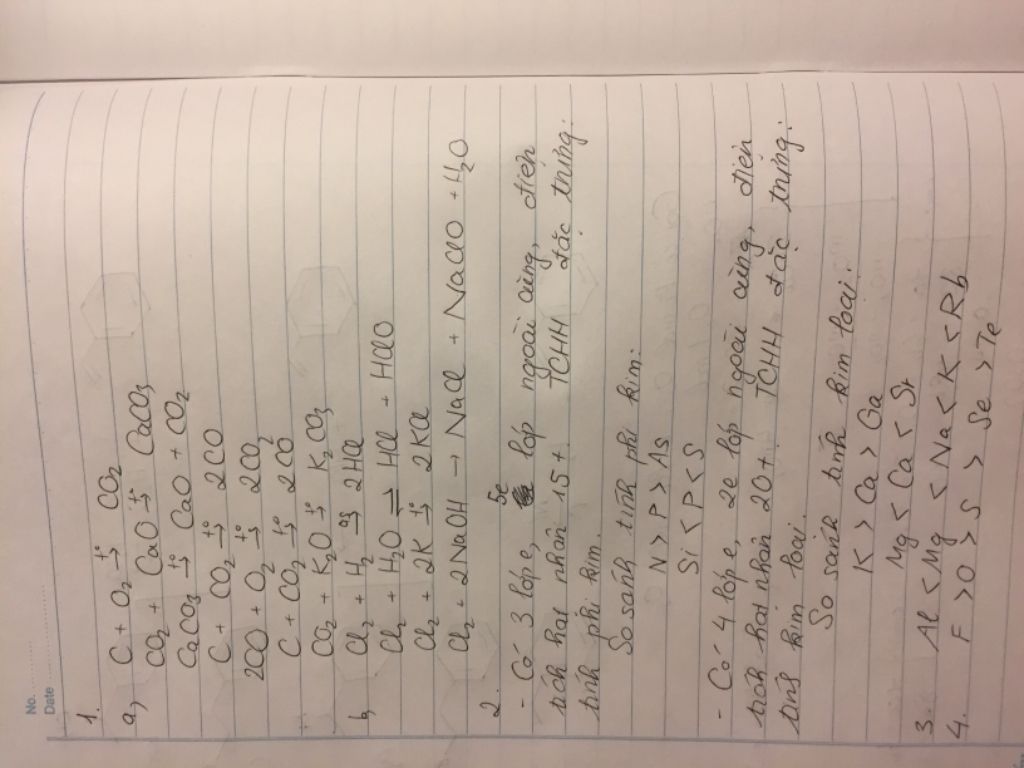 No.
Date
1.
a, C + O₂ →t° CO₂
CO₂ + CaO →t° CaCO₃
CaCO₃ →t° CaO + CO₂
C + CO₂ →t° 2CO
2CO + O₂ →t° 2CO₂
C + CO₂ →t° 2CO
CO₂ + K₂O →t° K₂CO₃
b, Cl₂ + H₂ →as 2HCl
Cl₂ + H₂O ⇌ HCl + HClO
Cl₂ + 2K →t° 2KCl
Cl₂ + 2NaOH → NaCl + NaClO + H₂O
2.
- Có 3 lớp e, 5e lớp ngoài cùng, điện
tích hạt nhân 15+. TCHH đặc trưng:
tính phi kim.
So sánh tính phi kim:
N > P > As
Si < P < S
- Có 4 lớp e, 2e lớp ngoài cùng, điện
tích hạt nhân 20+. TCHH đặc trưng:
tính kim loại.
So sánh tính kim loại:
K > Ca > Ga
Mg < Ca < Sr
3. Al < Mg < Na < K < Rb
4. F > O > S > Se > Te